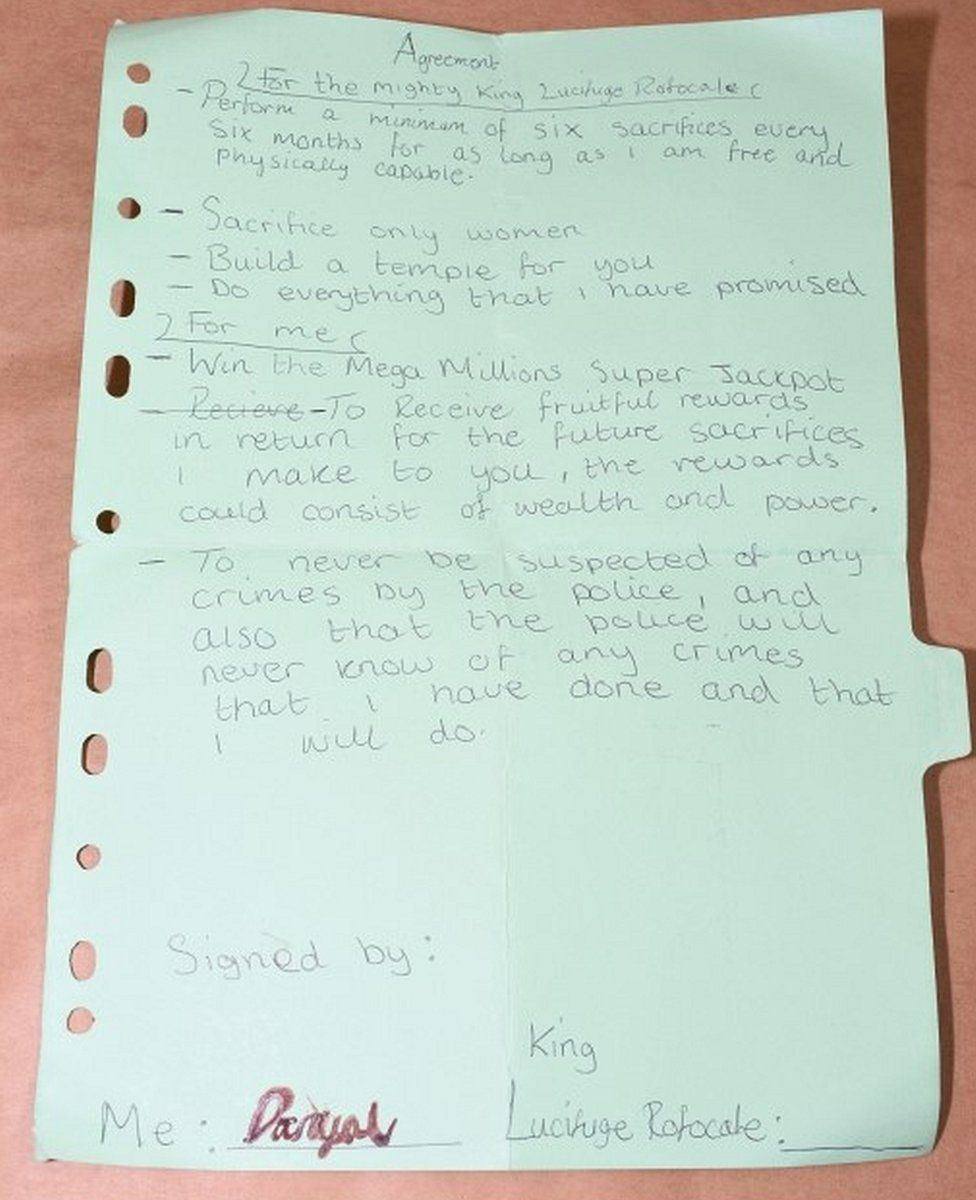 Agreement
2 For the mighty King Lucifuge Rofocale (
- Perform a minimum of six sacrifices every
six months for as long as I am free and
physically capable.
- Sacrifice only women
- Build a temple for you
- Do everything that i have promised
2 For me (
- Win the Mega Millions Super Jackpot
- Recieve - To Receive fruitful rewards
in return for the future sacrifices
I make to you, the rewards
could consist of wealth and power.
- To never be suspected of any
crimes by the police, and
also that the police will
never know of any crimes
that I have done and that
I will do.
Signed by:
King
Me: Danyal Lucifuge Rofocale: